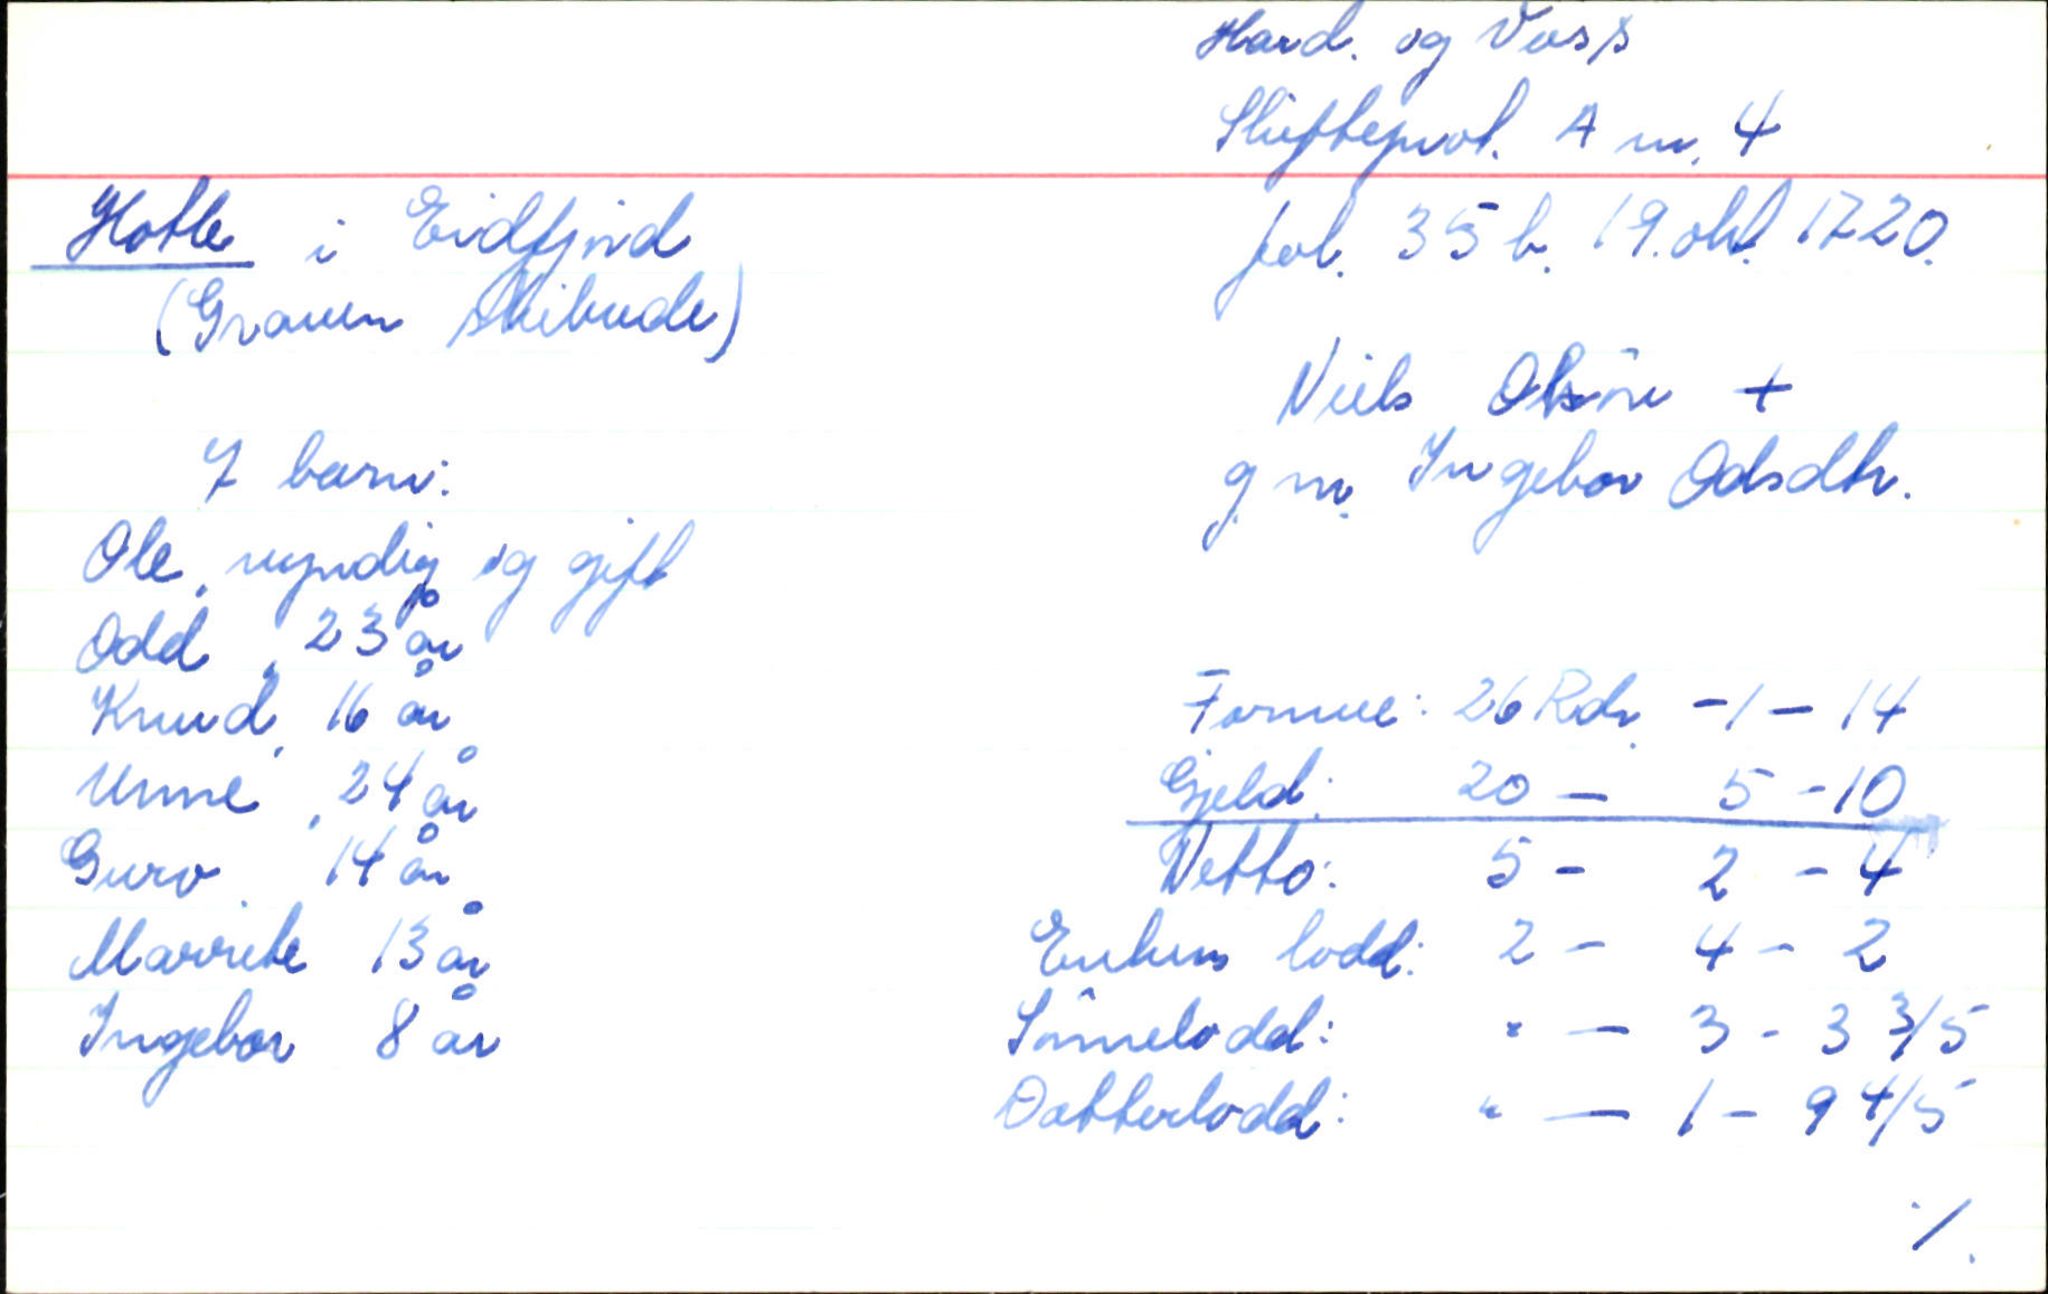 Hard. og Voss
Skifteprot. A nr. 4
Hotle i Eidfjord
(Graven skibrede)
fol. 35 b. 19. okt. 1720.
Niels Olsøn +
g. m. Ingebor Odsdtr.
7 barn:
Ole, myndig og gift
Odd, 23 år
Knud, 16 år
Unne, 24 år
Guro, 14 år
Marrite 13 år
Ingebor 8 år
Formue: 26 Rdr. - 1 - 14
Gjeld: 20 - 5 - 10
Netto: 5 - 2 - 4
Enkens lodd: 2 - 4 - 2
Sönnelodd: " - 3 - 3 3/5
Datterlodd: " - 1 - 9 4/5
./.